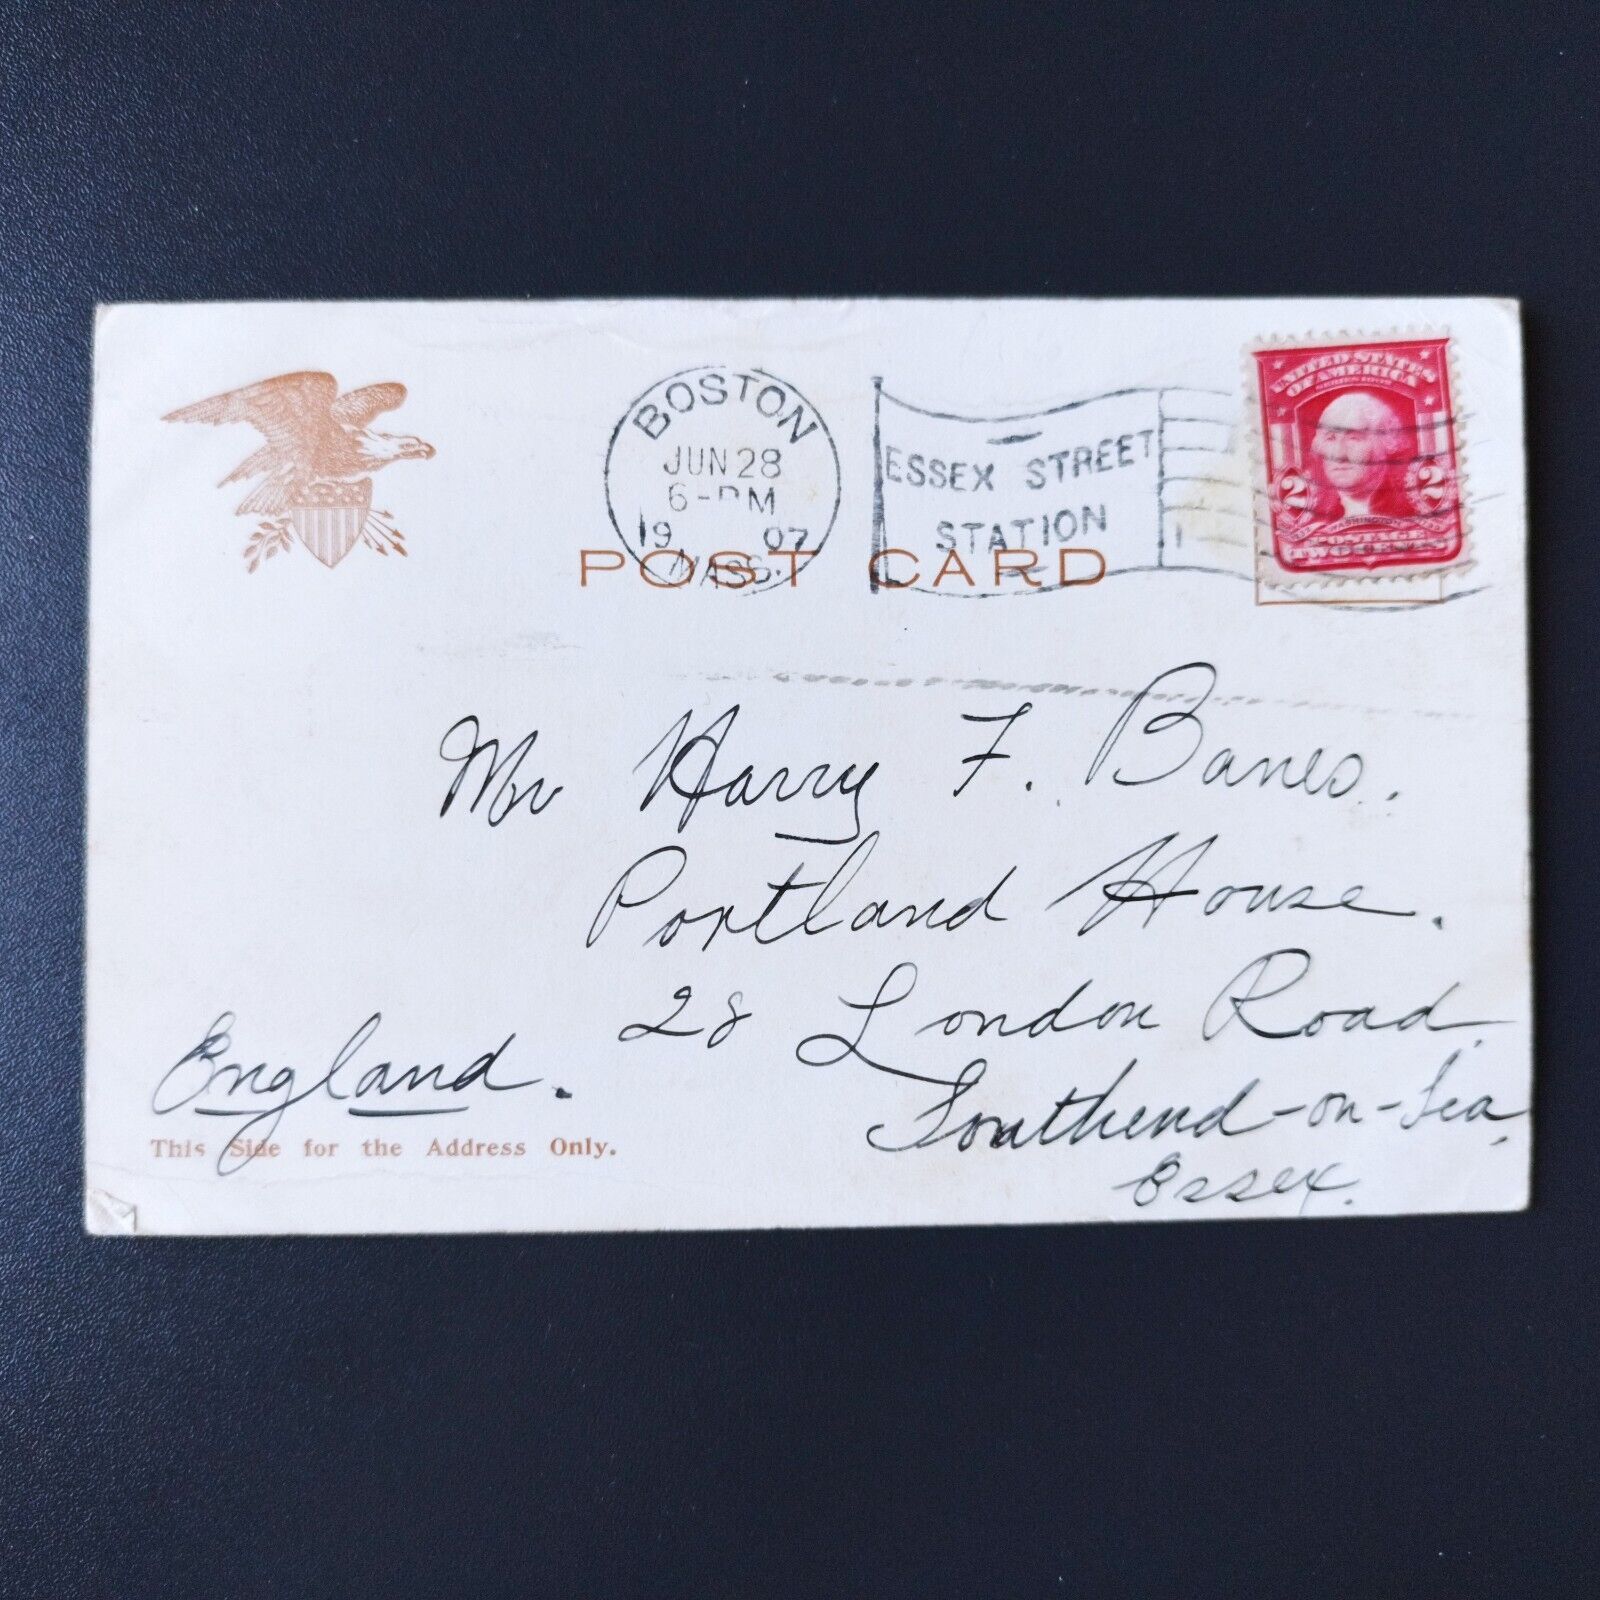 BOSTON
JUN 28
6-PM
19 07
MASS.
ESSEX STREET
STATION
UNITED STATES
OF AMERICA
SERIES 1902
2 2
POSTAGE
TWO CENTS
POST CARD
Mr Harry F. Banes.
Portland House.
28 London Road
Southend-on-Sea,
Essex.
England.
This Side for the Address Only.